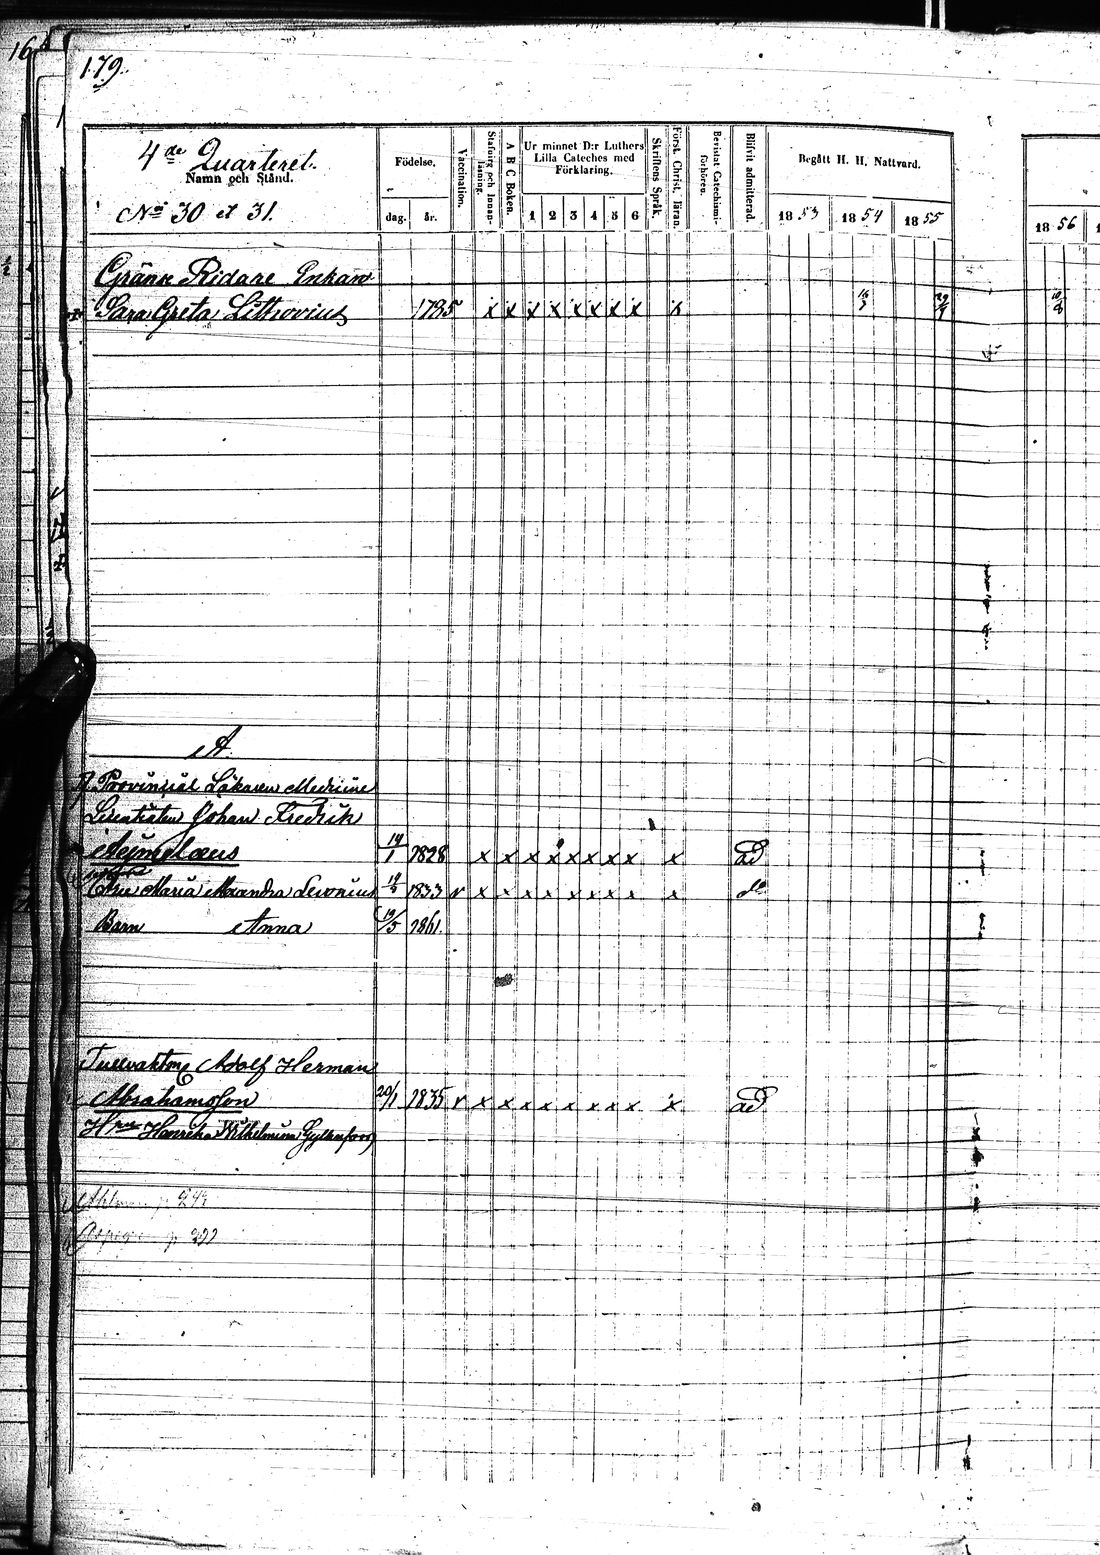 179.
4de Quarteret.
Namn och Stånd.
No 30 et 31.
Födelse.
dag. år.
Vaccination.
Stafning och Innanläsning.
A B C Boken.
Ur minnet D:r Luthers
Lilla Cateches med
Förklaring.
1 2 3 4 5 6
Skriftens Språk.
Först. Christ. läran.
Bevistat Catechismiförhören.
Blifvit admitterad.
Begått H. H. Nattvard.
1853 1854 1855
1856
Gräns Ridare Enkan
Sara Greta Lithovius 1785 x x x x x x x x x
A.
Provinsial Läkaren Medicine
Licentiaten Johan Fredrik
Aejmelæus 14/1 1828 x x x x x x x x x ad
Maria Alexandra Levonius 1833 v x x x x x x x x x do
Barn Anna 19/5 1861.
Tullvaktm Adolf Herman
Abrahamsson 20/1 1835 v x x x x x x x x x ad
Hru Henrika Wilhelmina